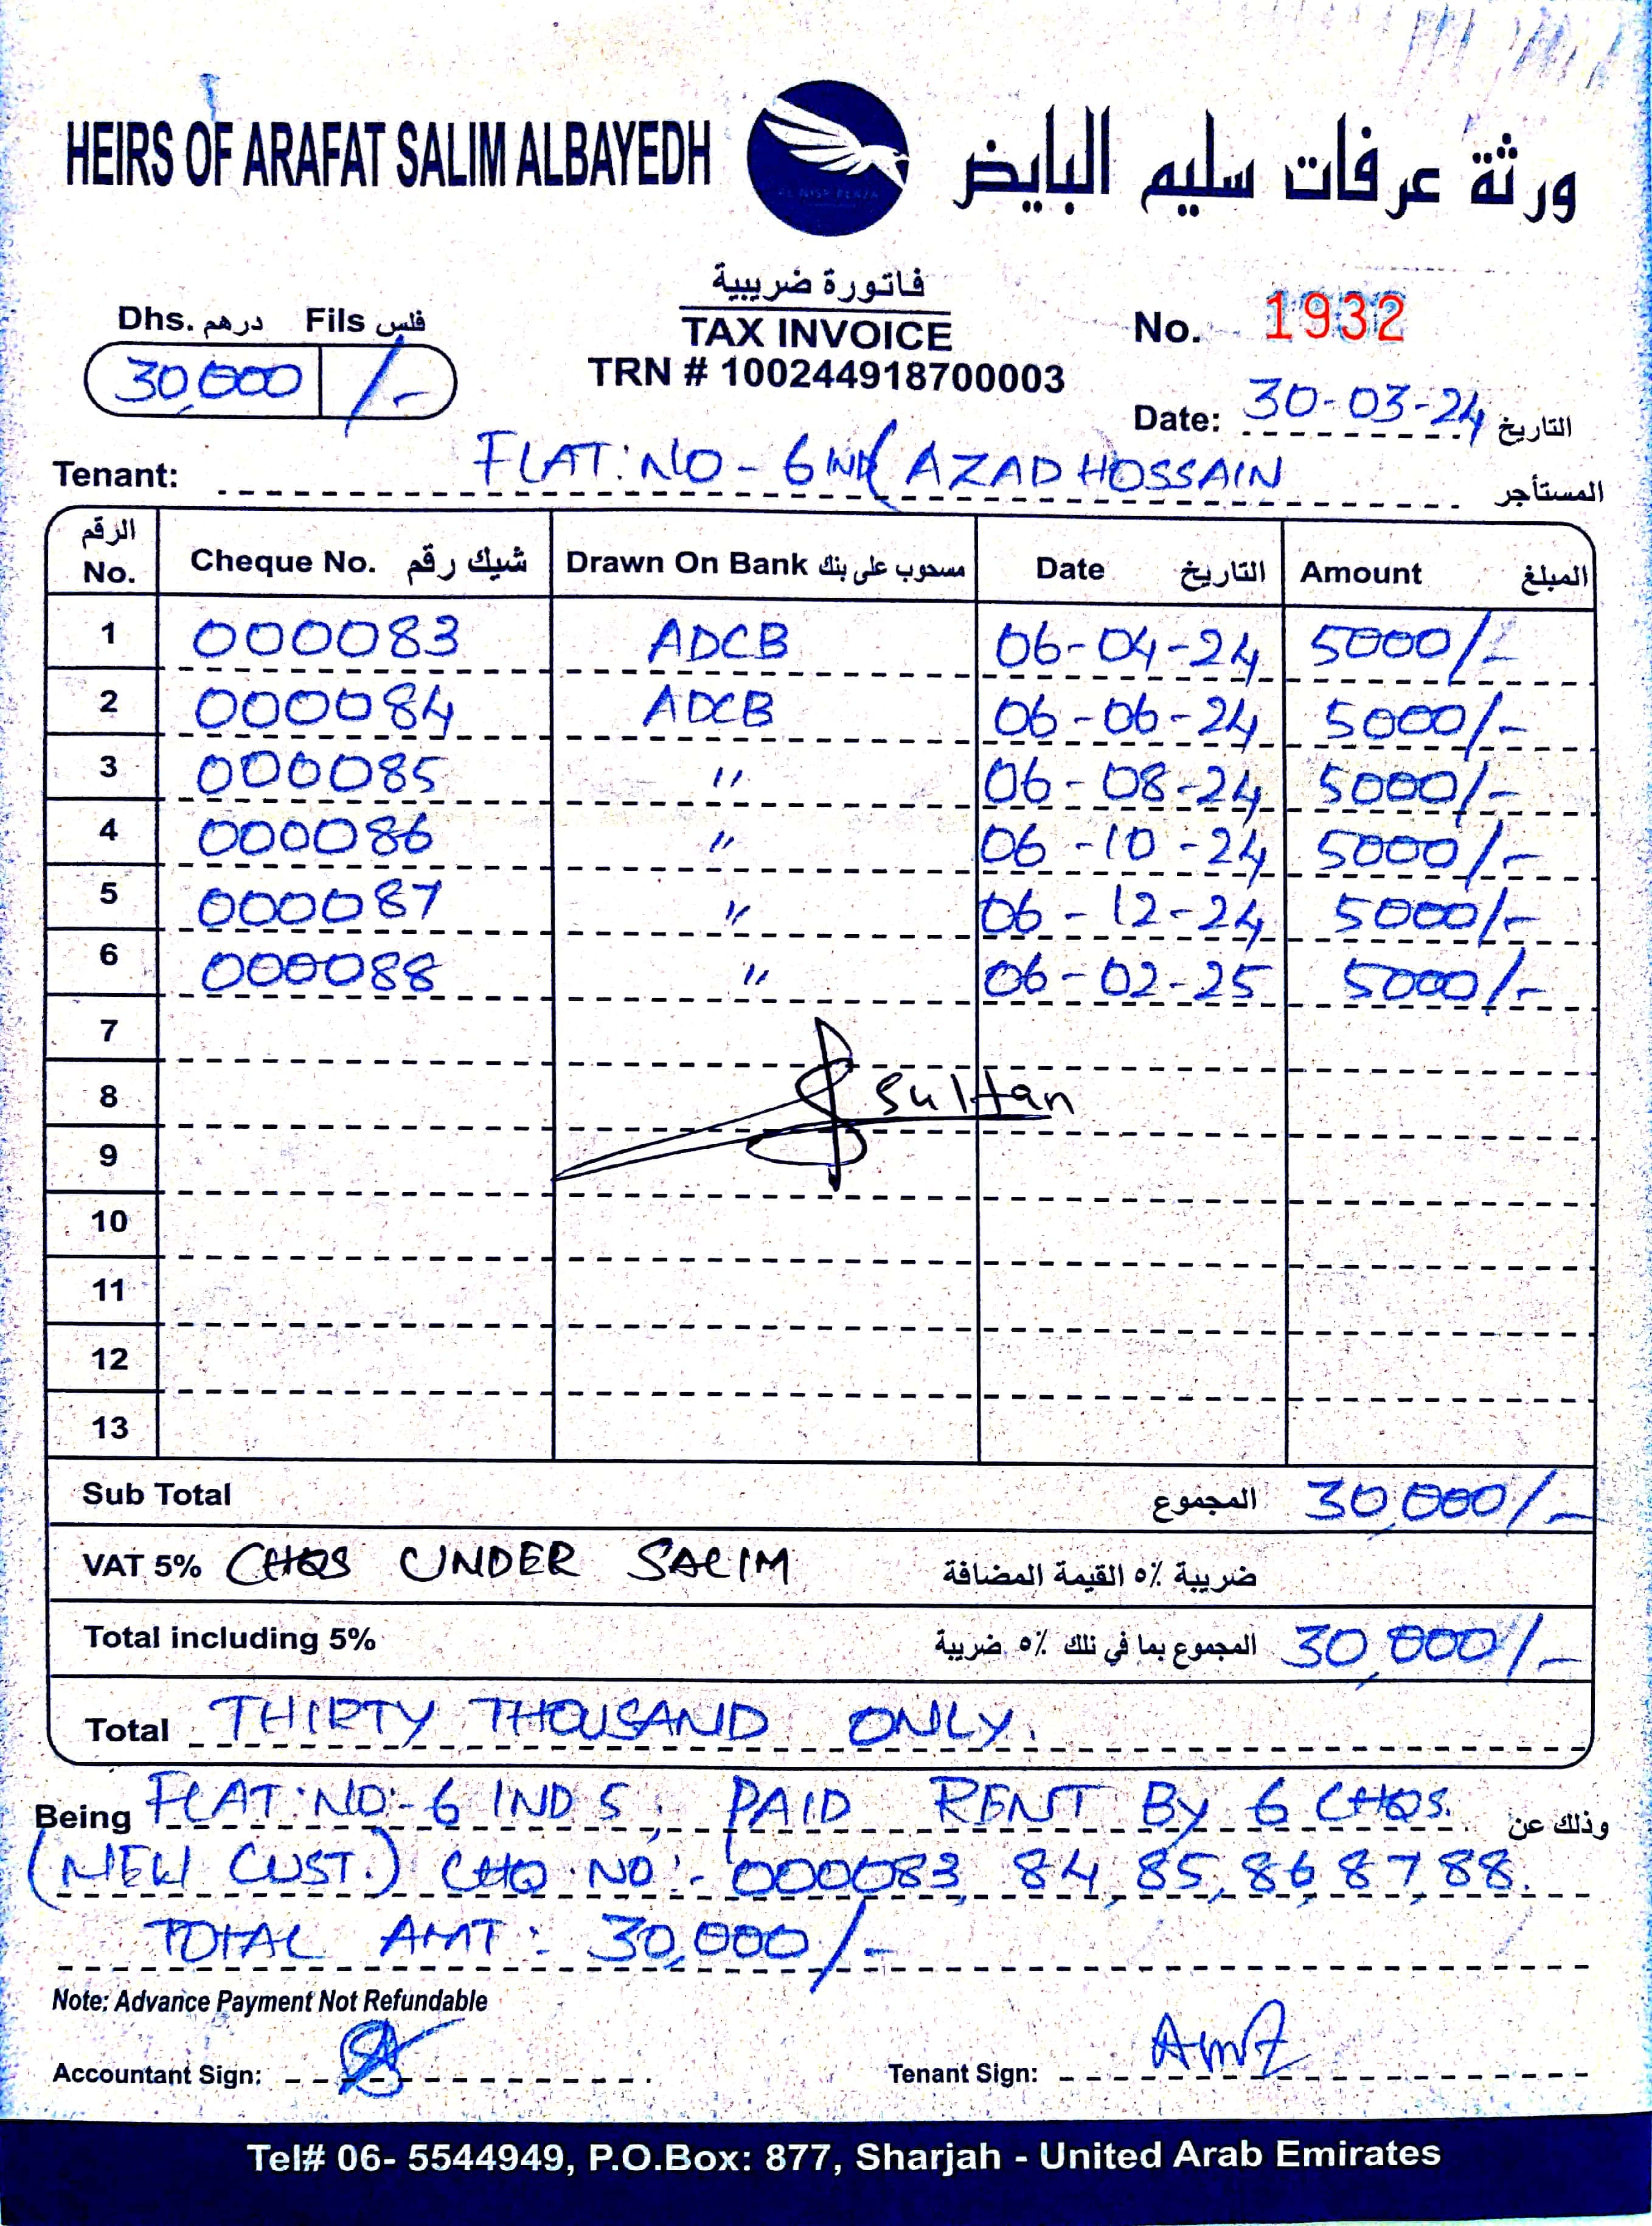 HEIRS OF ARAFAT SALIM ALBAYEDH
ورثة عرفات سليم البايض
فاتورة ضريبية
TAX INVOICE
TRN # 100244918700003
Dhs. درهم Fils فلس
30,000 /-
No. 1932
Date: 30-03-24 التاريخ
Tenant: FLAT: NO - 6 IND ( AZAD HOSSAIN المستأجر
الرقم No. Cheque No. شيك رقم Drawn On Bank مسحوب على بنك Date التاريخ Amount المبلغ
1 000083 ADCB 06-04-24 5000/-
2 000084 ADCB 06-06-24 5000/-
3 000085 " 06-08-24 5000/-
4 000086 " 06-10-24 5000/-
5 000087 " 06-12-24 5000/-
6 000088 " 06-02-25 5000/-
7
8 Sultan
9
10
11
12
13
Sub Total المجموع 30,000/-
VAT 5% CHQS UNDER SALIM ضريبة ٥٪ القيمة المضافة
Total including 5% المجموع بما في ذلك ٥٪ ضريبة 30,000/-
Total THIRTY THOUSAND ONLY.
Being FLAT: NO:- 6 IND 5, PAID RENT By 6 CHQS. وذلك عن
(NEW CUST.) CHQ. NO:- 000083, 84, 85, 86, 87, 88.
TOTAL AMT: 30,000/-
Note: Advance Payment Not Refundable
Accountant Sign:
Tenant Sign:
Tel# 06- 5544949, P.O.Box: 877, Sharjah - United Arab Emirates